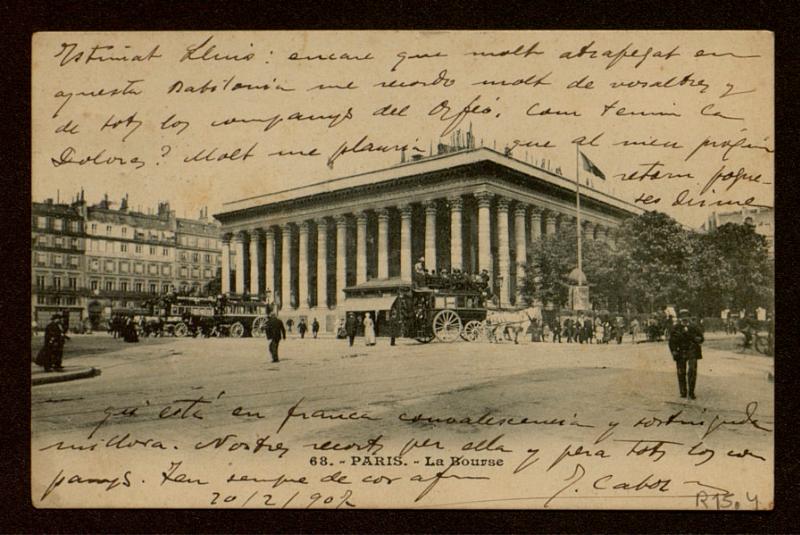 Estimat Lluis: encare que molt atrapegat en
aquesta Babilonia me recordo molt de vosaltres y
de tots los companys del Orfeó. Com tenim la
Dolores? Molt me plauria que al meu
retorn pogue-
ses dirme
que está en franca convalescencia y
millora. Nostres recorts per ella y pera tots los com
panys. Teu sempre de cor afm
68. - PARIS. - La Bourse
20/2/902
J. Cabot
R.15.4